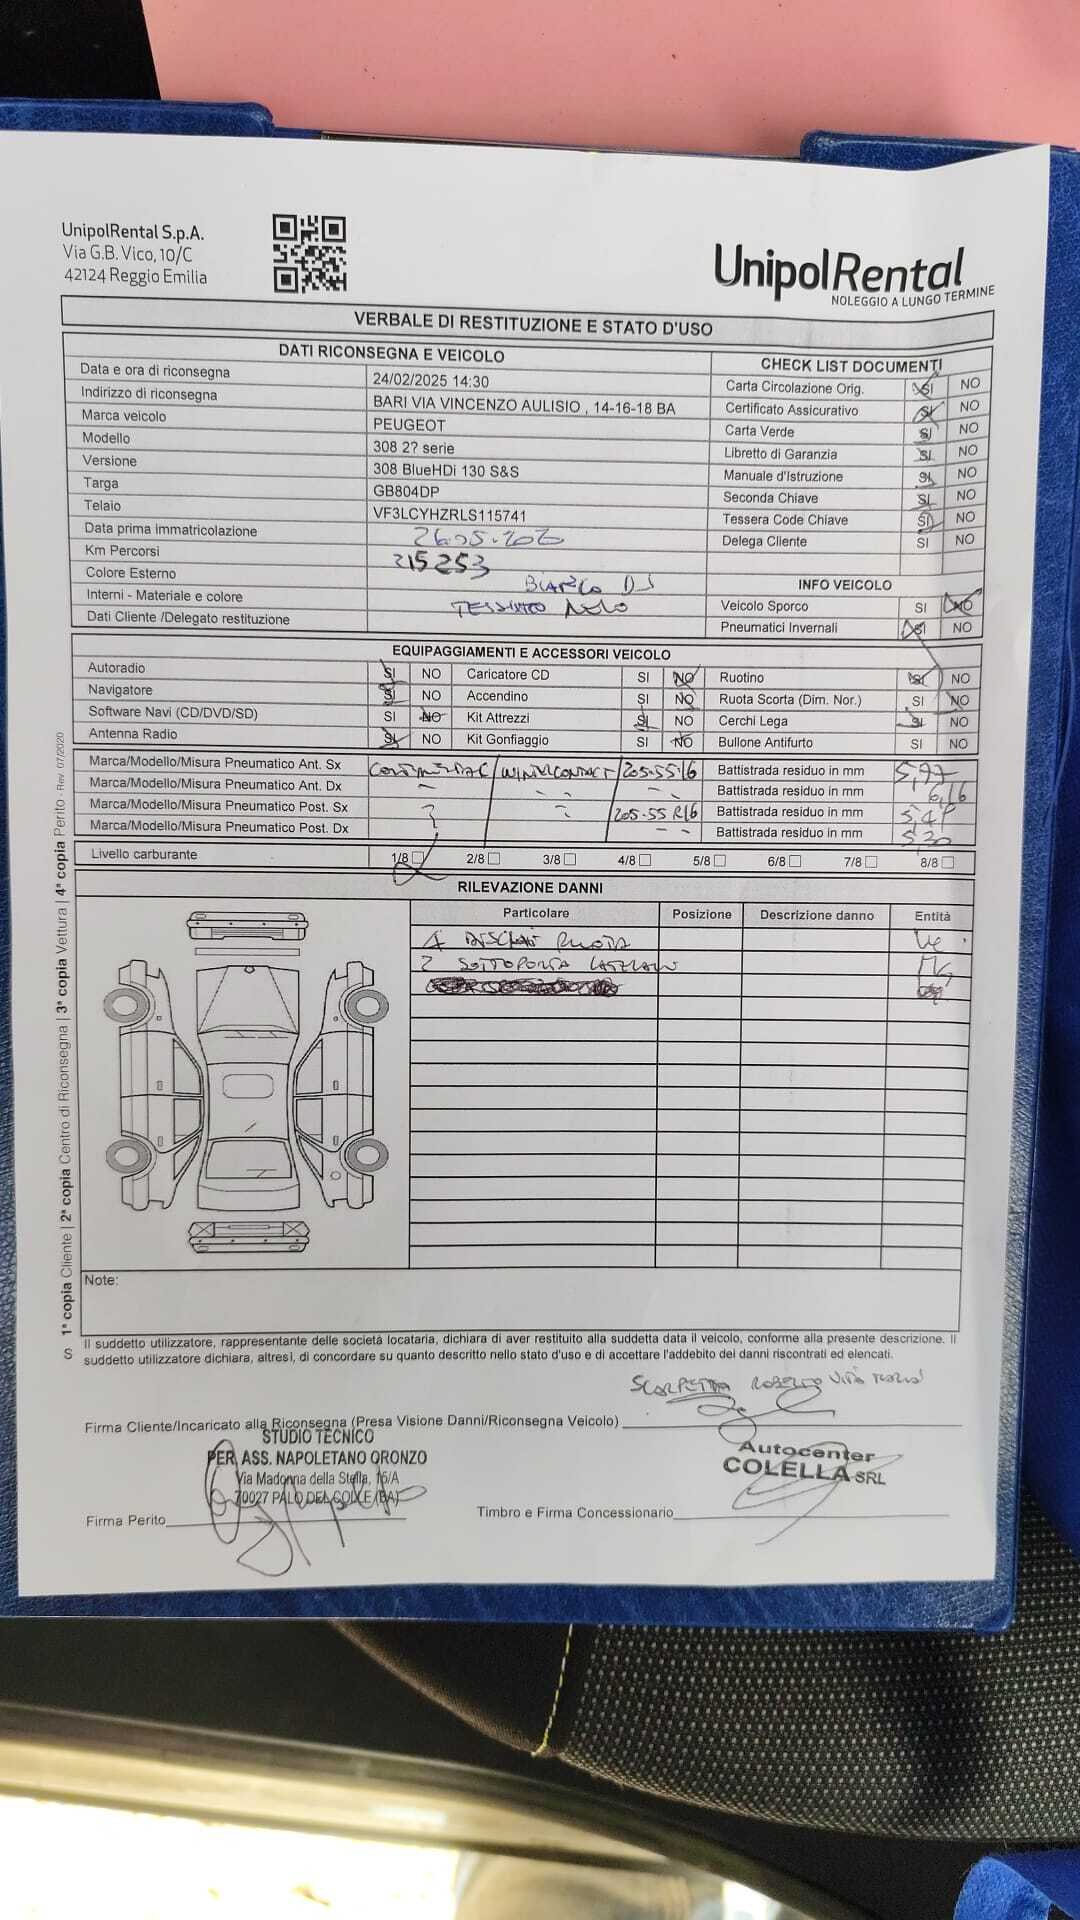 UnipolRental S.p.A.
Via G.B. Vico, 10/C
42124 Reggio Emilia
UnipolRental
NOLEGGIO A LUNGO TERMINE
VERBALE DI RESTITUZIONE E STATO D'USO
DATI RICONSEGNA E VEICOLO
Data e ora di riconsegna 24/02/2025 14:30
Indirizzo di riconsegna BARI VIA VINCENZO AULISIO , 14-16-18 BA
Marca veicolo PEUGEOT
Modello 308 2? serie
Versione 308 BlueHDi 130 S&S
Targa GB804DP
Telaio VF3LCYHZRLS115741
Data prima immatricolazione
Km Percorsi 215253
Colore Esterno
Interni - Materiale e colore TESSUTO NERO
Dati Cliente /Delegato restituzione
CHECK LIST DOCUMENTI
Carta Circolazione Orig. SI NO
Certificato Assicurativo SI NO
Carta Verde SI NO
Libretto di Garanzia SI NO
Manuale d'Istruzione SI NO
Seconda Chiave SI NO
Tessera Code Chiave SI NO
Delega Cliente SI NO
INFO VEICOLO
Veicolo Sporco SI NO
Pneumatici Invernali SI NO
EQUIPAGGIAMENTI E ACCESSORI VEICOLO
Autoradio SI NO Caricatore CD SI NO Ruotino SI NO
Navigatore SI NO Accendino SI NO Ruota Scorta (Dim. Nor.) SI NO
Software Navi (CD/DVD/SD) SI NO Kit Attrezzi SI NO Cerchi Lega SI NO
Antenna Radio SI NO Kit Gonfiaggio SI NO Bullone Antifurto SI NO
Marca/Modello/Misura Pneumatico Ant. Sx CONTINENTAL / WINTERCONTACT / 205.55.16 Battistrada residuo in mm 5,77
Marca/Modello/Misura Pneumatico Ant. Dx Battistrada residuo in mm 6,16
Marca/Modello/Misura Pneumatico Post. Sx 205.55 R16 Battistrada residuo in mm
Marca/Modello/Misura Pneumatico Post. Dx Battistrada residuo in mm 5,30
Livello carburante 1/8 2/8 3/8 4/8 5/8 6/8 7/8 8/8
RILEVAZIONE DANNI
Particolare Posizione Descrizione danno Entità
4 RUOTA
2 SOTTOPORTA
Note:
Il suddetto utilizzatore, rappresentante delle società locataria, dichiara di aver restituito alla suddetta data il veicolo, conforme alla presente descrizione. Il
suddetto utilizzatore dichiara, altresì, di concordare su quanto descritto nello stato d'uso e di accettare l'addebito dei danni riscontrati ed elencati.
SCARPETTA ROBERTO VITO
Firma Cliente/Incaricato alla Riconsegna (Presa Visione Danni/Riconsegna Veicolo)
STUDIO TECNICO
PER. ASS. NAPOLETANO ORONZO
Via Madonna della Stella, 15/A
70027 PALO DEL COLLE (BA)
Firma Perito
Autocenter
COLELLA SRL
Timbro e Firma Concessionario
1ª copia Cliente | 2ª copia Centro di Riconsegna | 3ª copia Vettura | 4ª copia Perito - Rev. 07/2020
S